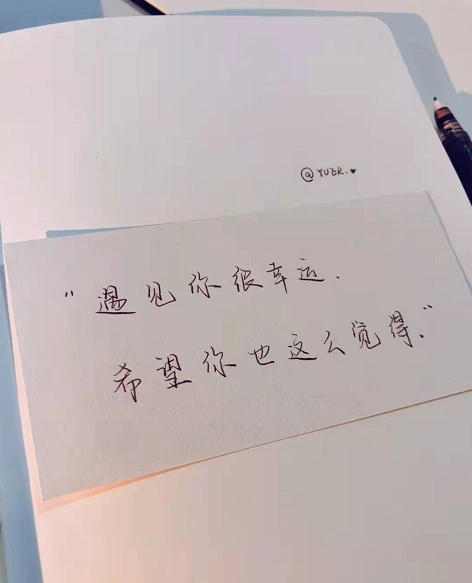 @YUER.♥
"遇见你很幸运.
希望你也这么觉得."